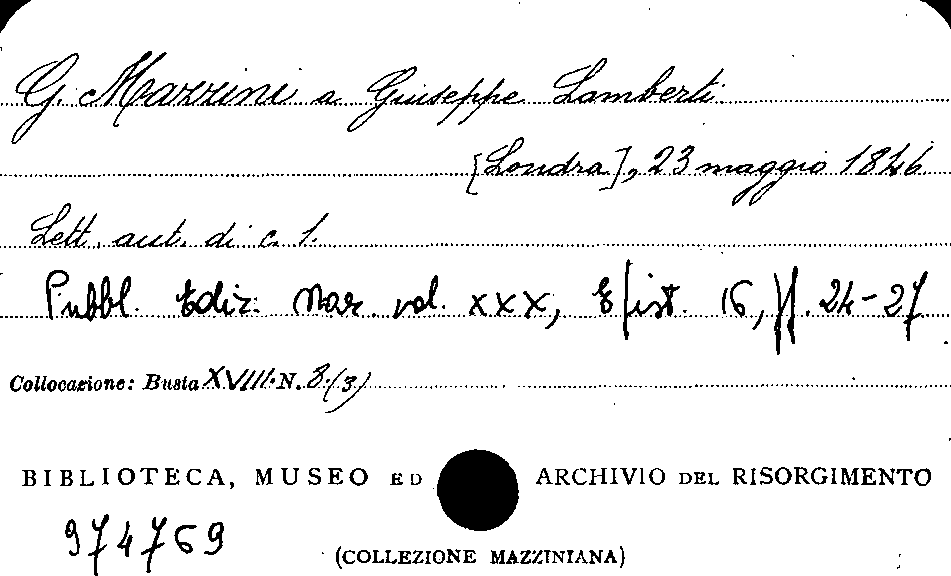 G. Mazzini a Giuseppe Lamberti
[Londra], 23 maggio 1846
Lett. aut. di c. 1.
Pubbl. Ediz. Naz. vol. XXX, Epist. 16, pp. 24-27
Collocazione: Busta XVIII. N. 8.(3)
BIBLIOTECA, MUSEO ED ARCHIVIO DEL RISORGIMENTO
974769
(COLLEZIONE MAZZINIANA)